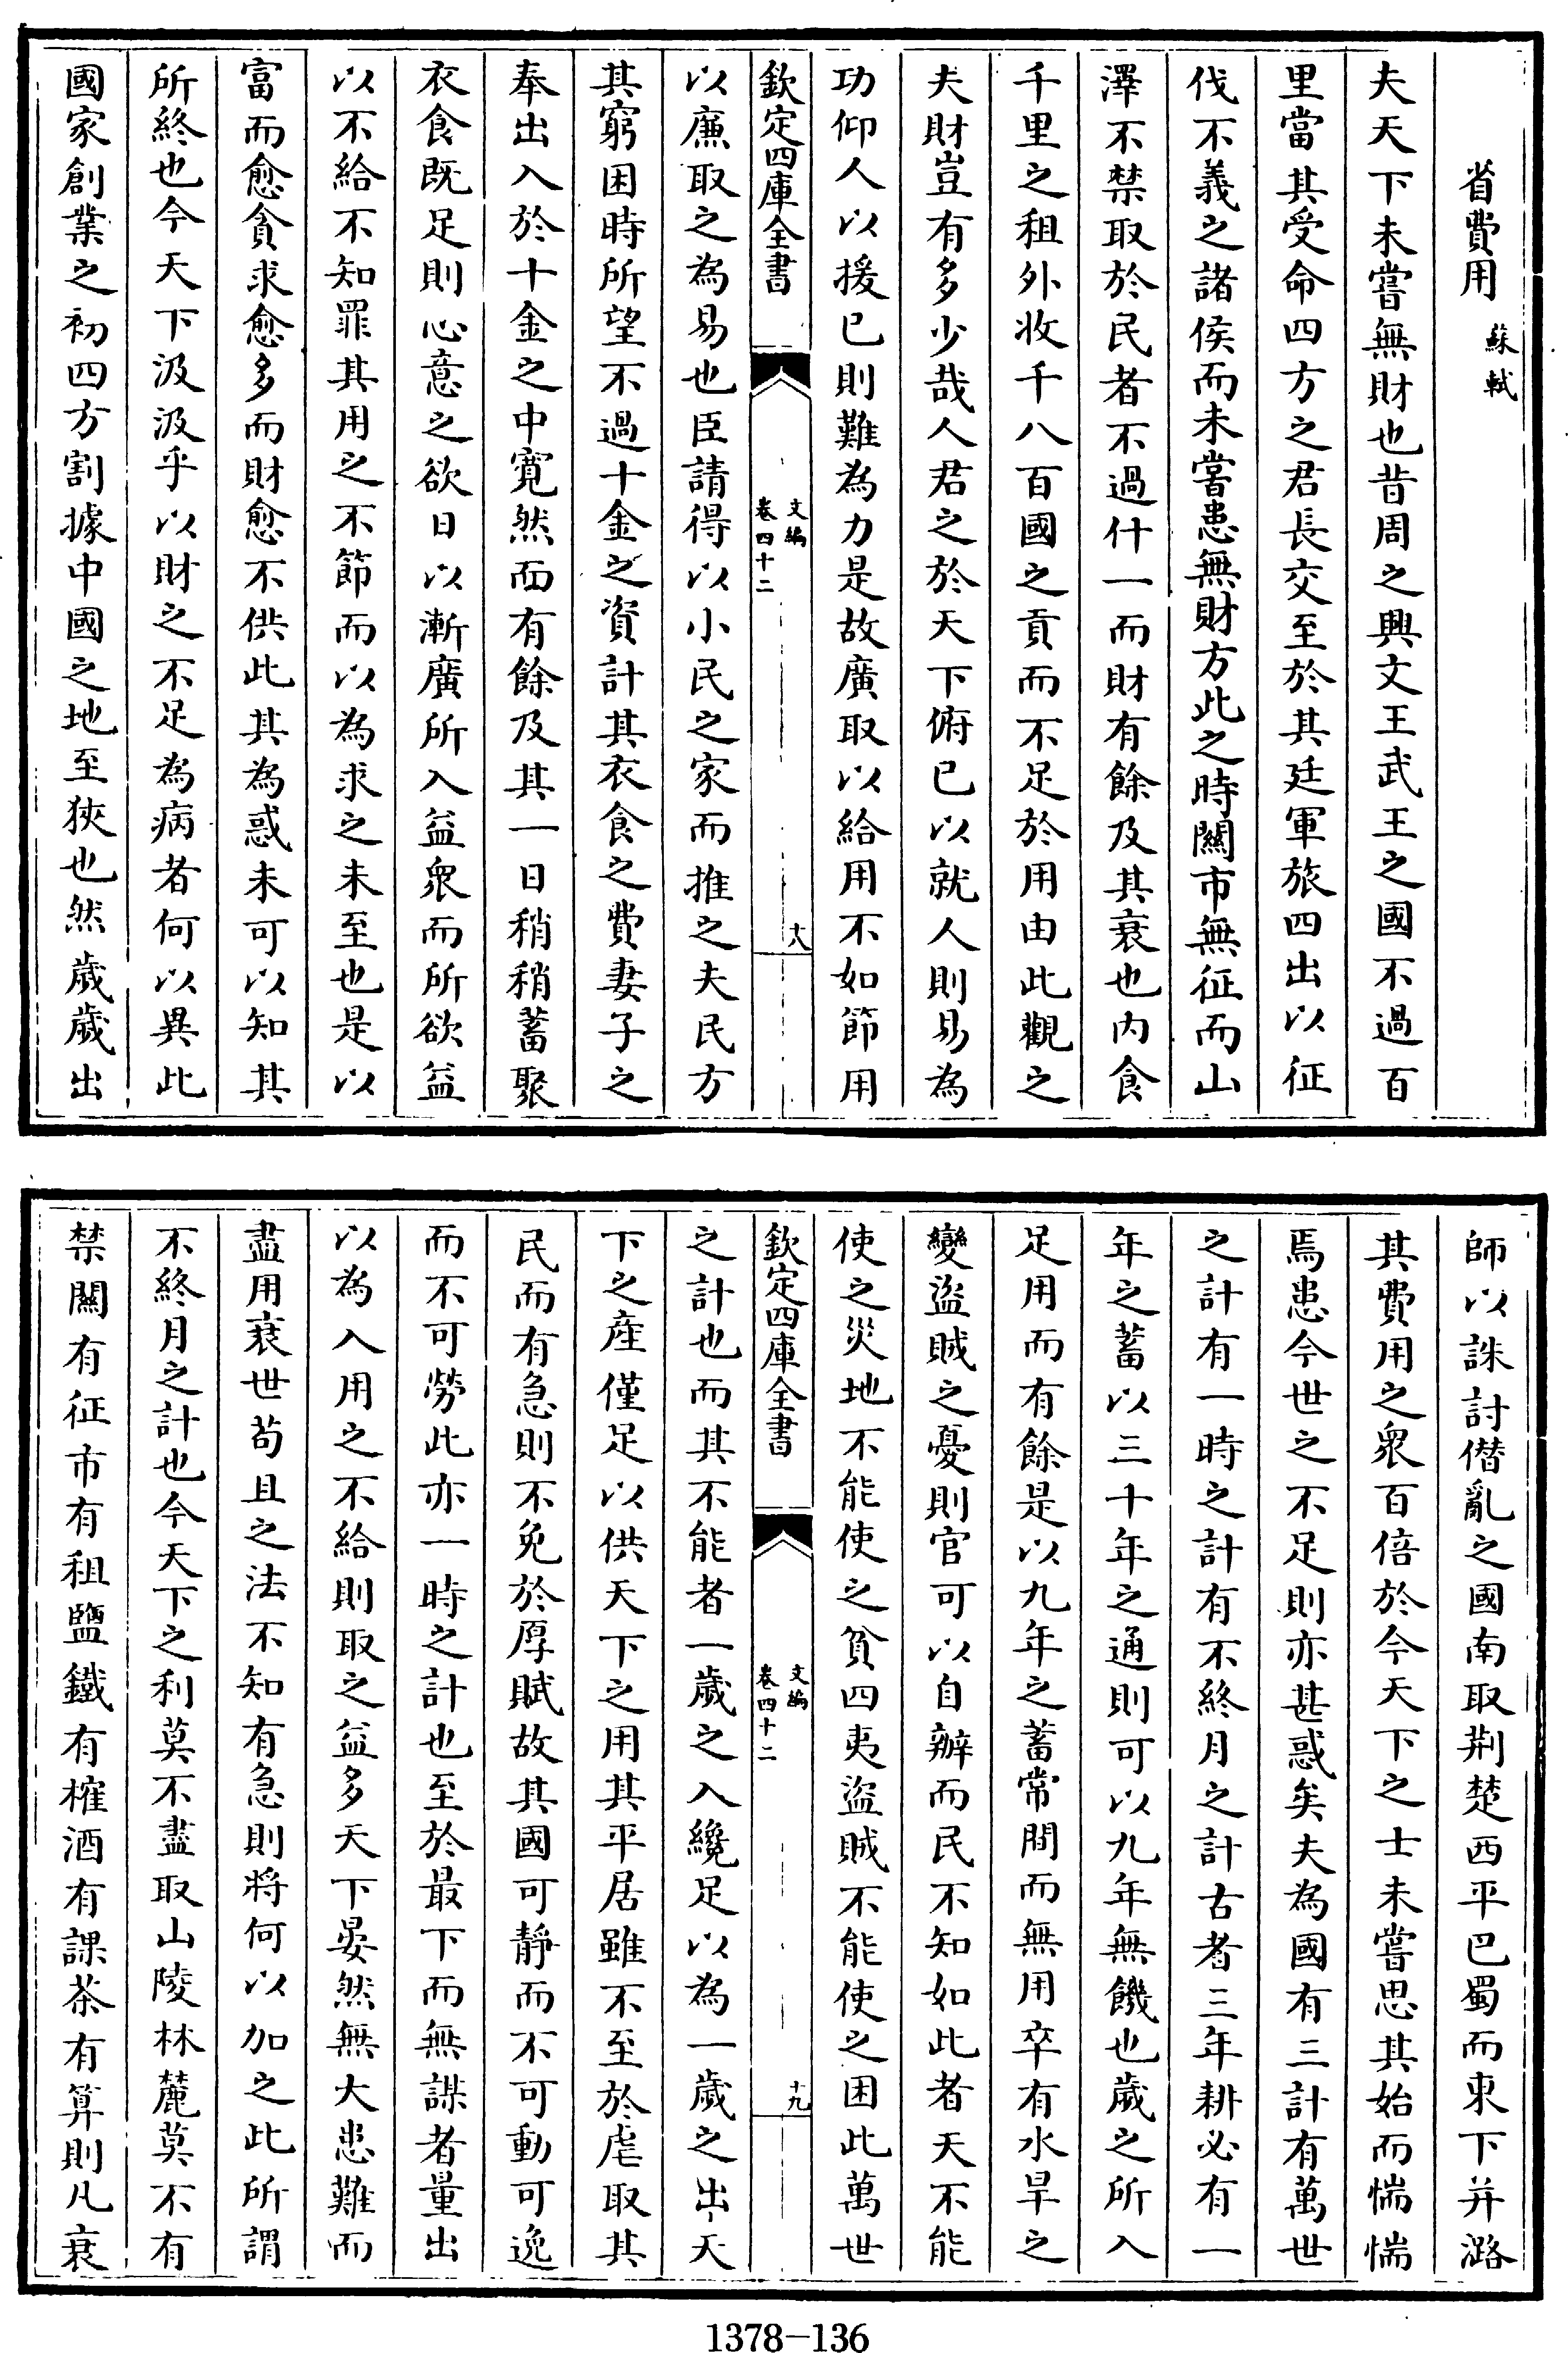 省費用 蘇軾
夫天下未嘗無財也昔周之興文王武王之國不過百
里當其受命四方之君長交至於其廷軍旅四出以征
伐不義之諸侯而未嘗患無財方此之時關市無征而山
澤不禁取於民者不過什一而財有餘及其衰也内食
千里之租外收千八百國之貢而不足於用由此觀之
夫財豈有多少哉人君之於天下俯已以就人則易為
功仰人以援已則難為力是故廣取以給用不如節用
欽定四庫全書
文編
卷四十二
十八
以廉取之為易也臣請得以小民之家而推之夫民方
其窮困時所望不過十金之資計其衣食之費妻子之
奉出入於十金之中寛然而有餘及其一日稍稍蓄聚
衣食既足則心意之欲日以漸廣所入益衆而所欲益
以不給不知罪其用之不節而以為求之未至也是以
富而愈貪求愈多而財愈不供此其為惑未可以知其
所終也今天下汲汲乎以財之不足為病者何以異此
國家創業之初四方割據中國之地至狹也然歲歲出
師以誅討僭亂之國南取荆楚西平巴蜀而東下并潞
其費用之衆百倍於今天下之士未嘗思其始而惴惴
焉患今世之不足則亦甚惑矣夫為國有三計有萬世
之計有一時之計有不終月之計古者三年耕必有一
年之蓄以三十年之通則可以九年無饑也歲之所入
足用而有餘是以九年之蓄常間而無用卒有水旱之
變盜賊之憂則官可以自辦而民不知如此者天不能
使之災地不能使之貧四夷盜賊不能使之困此萬世
欽定四庫全書
文編
卷四十二
十九
之計也而其不能者一歲之入纔足以為一歲之出天
下之産僅足以供天下之用其平居雖不至於虐取其
民而有急則不免於厚賦故其國可靜而不可動可逸
而不可勞此亦一時之計也至於最下而無謀者量出
以為入用之不給則取之益多天下晏然無大患難而
盡用衰世苟且之法不知有急則將何以加之此所謂
不終月之計也今天下之利莫不盡取山陵林麓莫不有
禁關有征市有租鹽鐵有榷酒有課茶有算則凡衰
1378-136